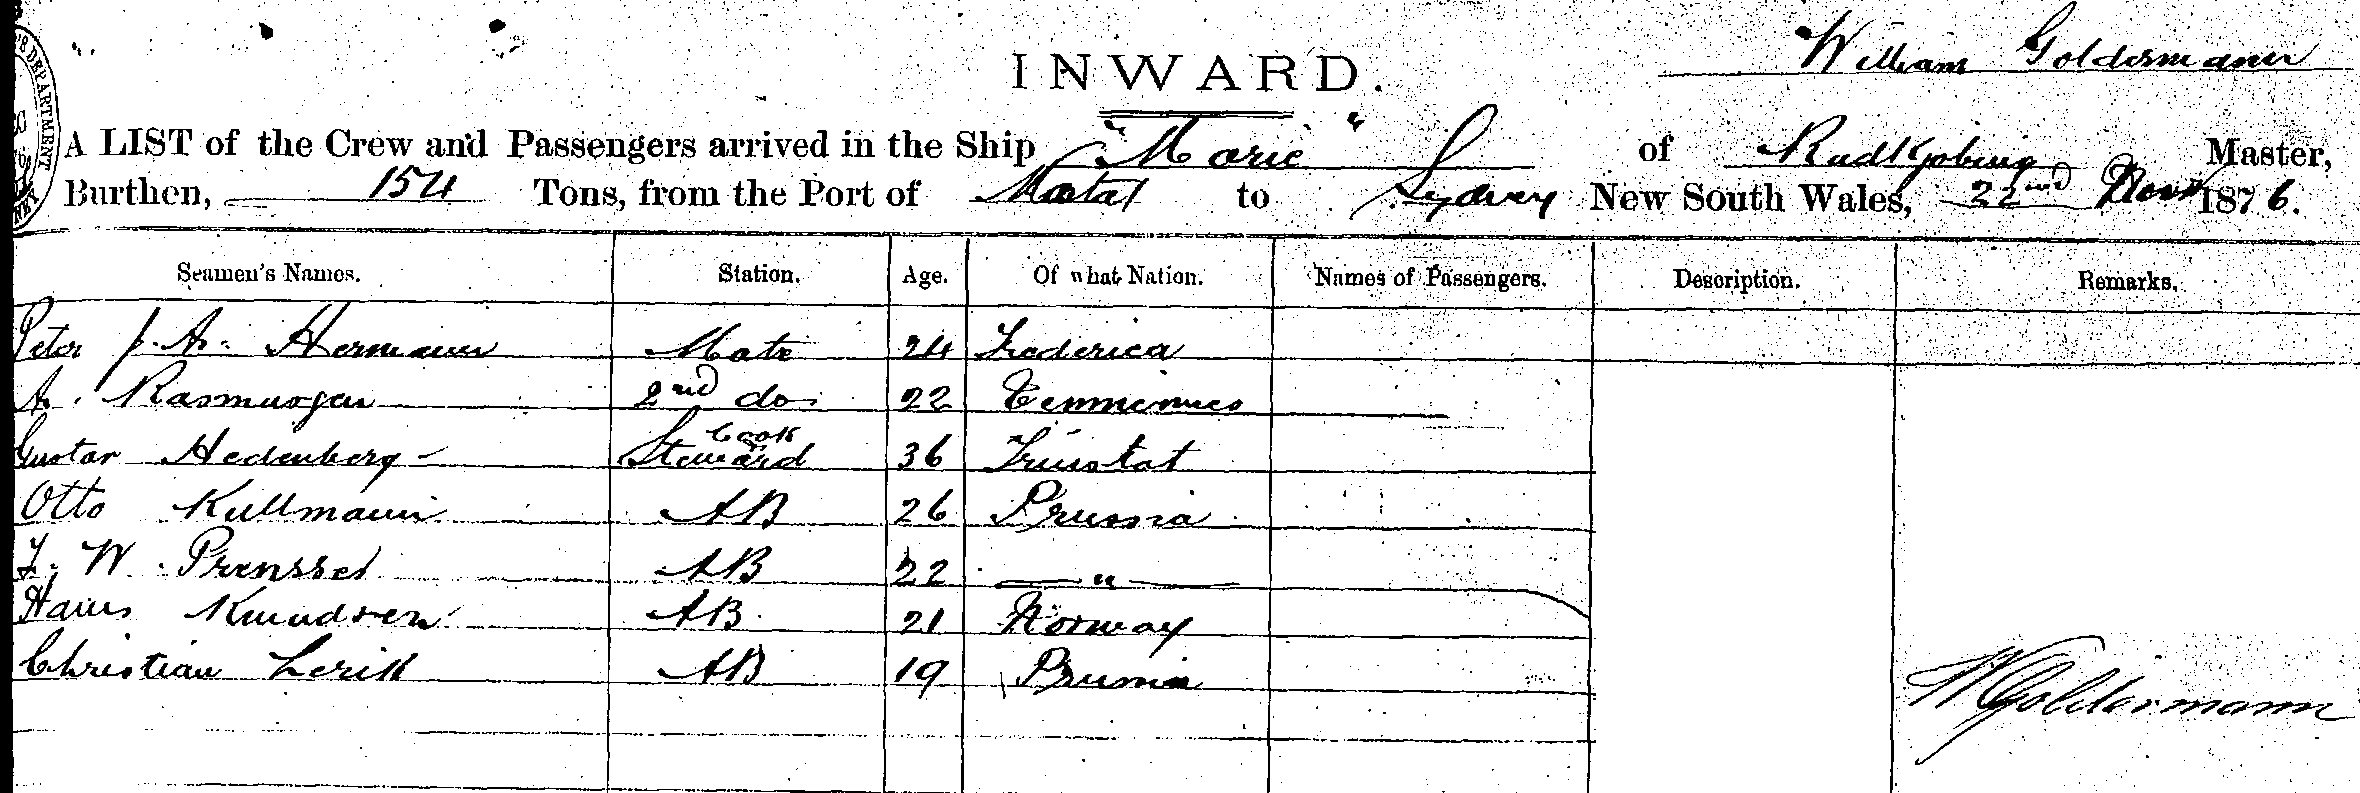 INWARD.
William Goldermann
A LIST of the Crew and Passengers arrived in the Ship "Marie" of Rudkjobing Master,
Burthen, 154 Tons, from the Port of Natal to Sydney New South Wales, 22nd Novr 1876.
Seamen's Names. Station. Age. Of what Nation. Names of Passengers. Description. Remarks.
Peter J. A. Hermann Mate 24 Frederica
A. Rasmussen 2nd do. 22
Gustav Hedenberg Cook Steward 36
Otto Kullmann AB 26 Prussia
F. W. AB 22 — " —
Hans Knudsen AB 21 Norway
Christian AB 19 Prussia
W Goldermann
DEPARTMENT